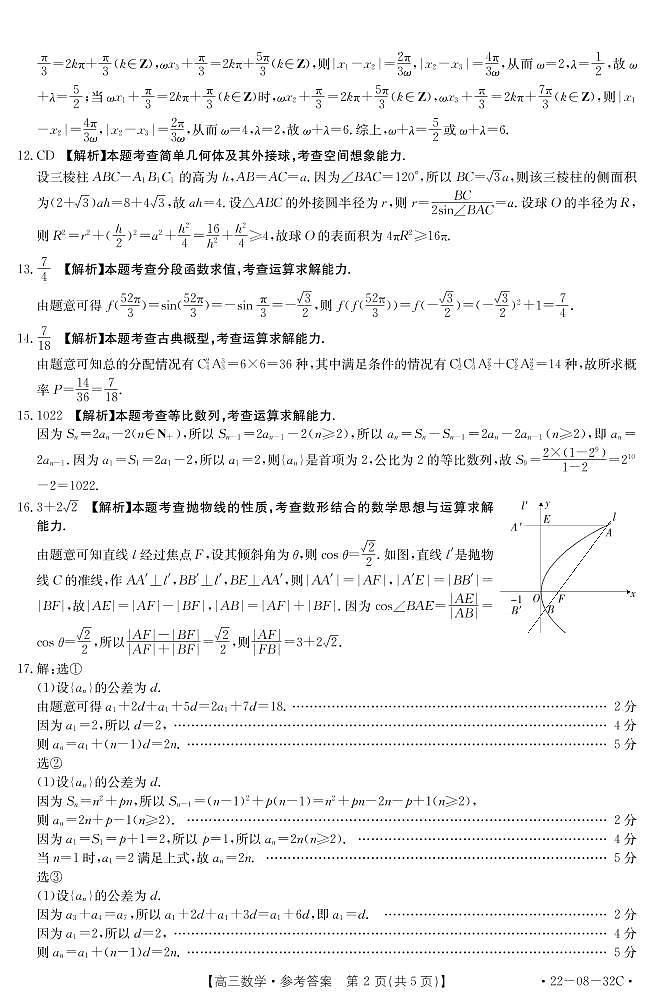 π/3=2kπ+π/3(k∈Z),ωx₃+π/3=2kπ+5π/3(k∈Z),则|x₁-x₂|=2π/3ω,|x₂-x₃|=4π/3ω,从而 ω=2,λ=1/2,故 ω
+λ=5/2;当 ωx₁+π/3=2kπ+π/3(k∈Z)时,ωx₂+π/3=2kπ+5π/3(k∈Z),ωx₃+π/3=2kπ+7π/3(k∈Z),则|x₁
-x₂|=4π/3ω,|x₂-x₃|=2π/3ω,从而 ω=4,λ=2,故 ω+λ=6.综上,ω+λ=5/2或 ω+λ=6.
12.CD 【解析】本题考查简单几何体及其外接球,考查空间想象能力.
设三棱柱 ABC-A₁B₁C₁ 的高为 h,AB=AC=a.因为∠BAC=120°,所以 BC=√3a,则该三棱柱的侧面积
为(2+√3)ah=8+4√3,故 ah=4.设△ABC 的外接圆半径为 r,则 r=BC/2sin∠BAC=a.设球 O 的半径为 R,
则 R²=r²+(h/2)²=a²+h²/4=16/h²+h²/4≥4,故球 O 的表面积为 4πR²≥16π.
13.7/4 【解析】本题考查分段函数求值,考查运算求解能力.
由题意可得 f(52π/3)=sin(52π/3)=-sin π/3=-√3/2,则 f(f(52π/3))=f(-√3/2)=(-√3/2)²+1=7/4.
14.7/18 【解析】本题考查古典概型,考查运算求解能力.
由题意可知总的分配情况有 C₄²A₃³=6×6=36 种,其中满足条件的情况有 C₂¹C₃¹A₂²+C₂²A₂²=14 种,故所求概
率 P=14/36=7/18.
15.1022 【解析】本题考查等比数列,考查运算求解能力.
因为 Sₙ=2aₙ-2(n∈N₊),所以 Sₙ₋₁=2aₙ₋₁-2(n≥2),所以 aₙ=Sₙ-Sₙ₋₁=2aₙ-2aₙ₋₁(n≥2),即 aₙ=
2aₙ₋₁.因为 a₁=S₁=2a₁-2,所以 a₁=2,则{aₙ}是首项为 2,公比为 2 的等比数列,故 S₉=2×(1-2⁹)/1-2=2¹⁰
-2=1022.
16.3+2√2 【解析】本题考查抛物线的性质,考查数形结合的数学思想与运算求解
能力.
由题意可知直线 l 经过焦点 F,设其倾斜角为 θ,则 cos θ=√2/2.如图,直线 l′是抛物
线 C 的准线,作 AA′⊥l′,BB′⊥l′,BE⊥AA′,则|AA′|=|AF|,|A′E|=|BB′|=
|BF|,故|AE|=|AF|-|BF|,|AB|=|AF|+|BF|.因为 cos∠BAE=|AE|/|AB|=
cos θ=√2/2,所以|AF|-|BF|/|AF|+|BF|=√2/2,则|AF|/|FB|=3+2√2.
l′ y
E l
A′ A
-1 O F x
B′ B
17.解:选①
(1)设{aₙ}的公差为 d.
由题意可得 a₁+2d+a₁+5d=2a₁+7d=18. …… 2 分
因为 a₁=2,所以 d=2, …… 4 分
则 aₙ=a₁+(n-1)d=2n. …… 5 分
选②
(1)设{aₙ}的公差为 d.
因为 Sₙ=n²+pn,所以 Sₙ₋₁=(n-1)²+p(n-1)=n²+pn-2n-p+1(n≥2),
则 aₙ=2n+p-1(n≥2). …… 2 分
因为 a₁=S₁=p+1=2,所以 p=1,所以 aₙ=2n(n≥2). …… 4 分
当 n=1 时,a₁=2 满足上式,故 aₙ=2n. …… 5 分
选③
(1)设{aₙ}的公差为 d.
因为 a₃+a₄=a₇,所以 a₁+2d+a₁+3d=a₁+6d,即 a₁=d. …… 2 分
因为 a₁=2,所以 d=2, …… 4 分
则 aₙ=a₁+(n-1)d=2n. …… 5 分
【高三数学·参考答案 第 2 页(共 5 页)】 ·22-08-32C·